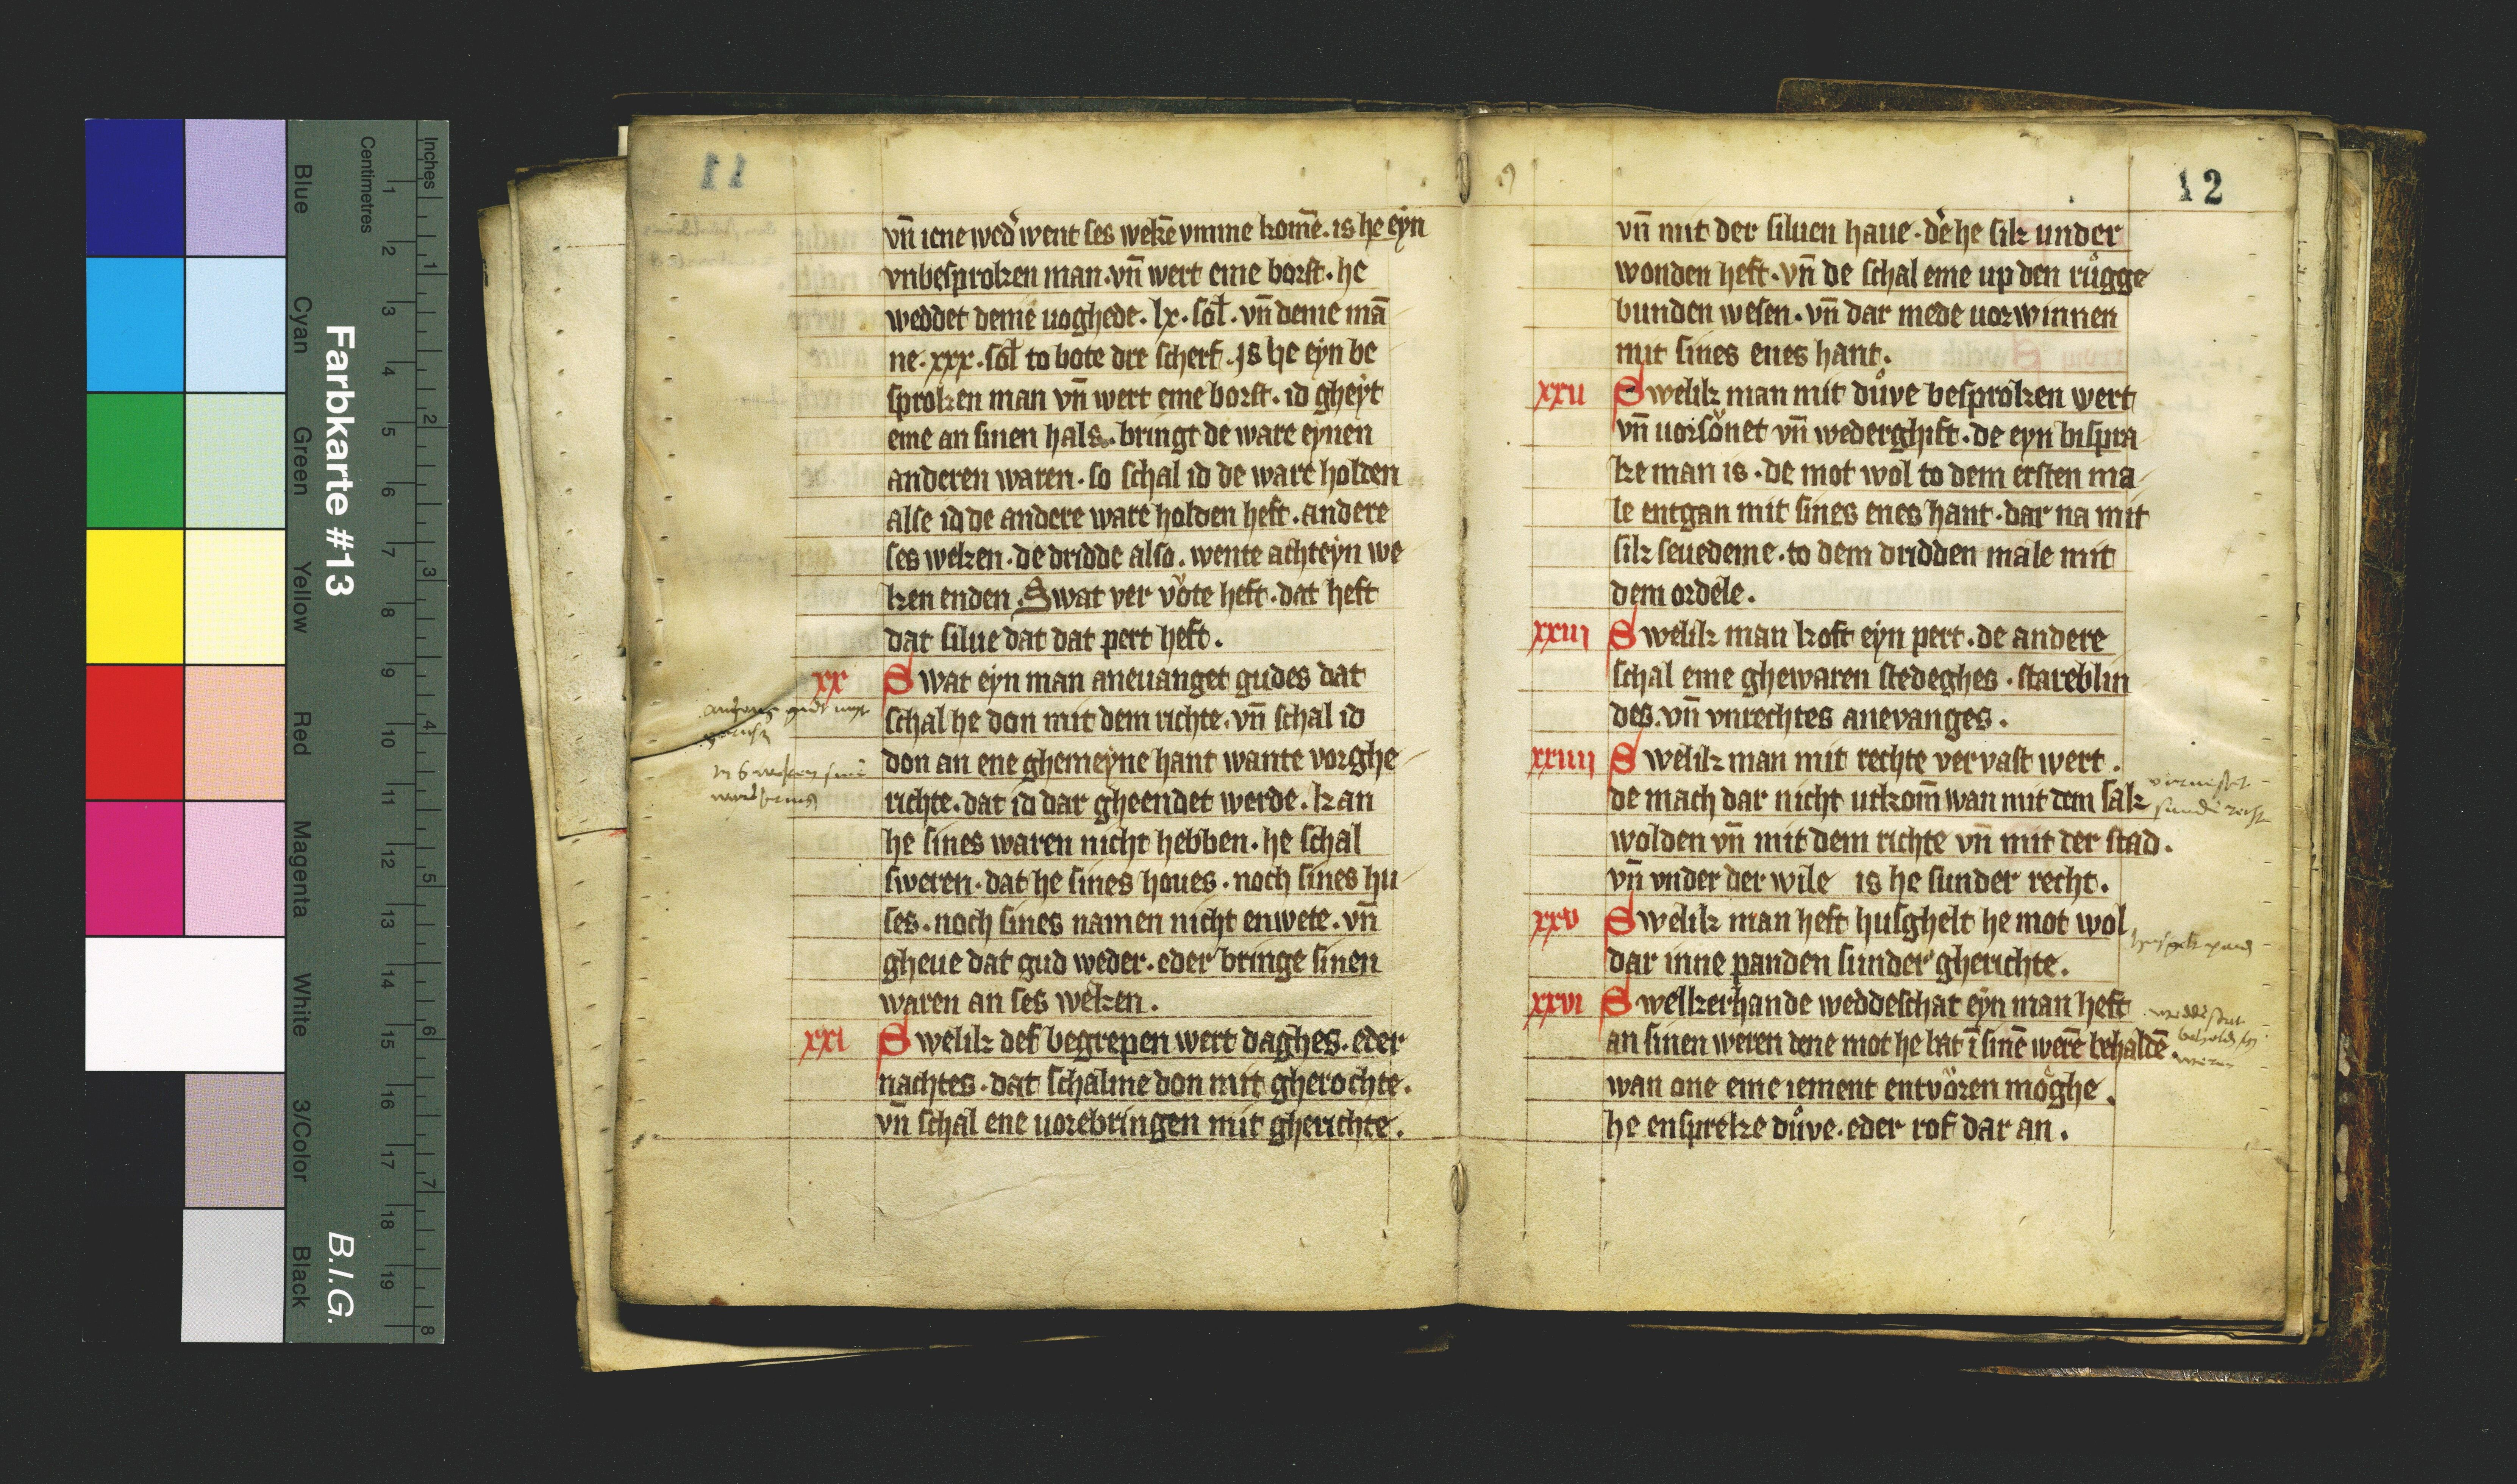 vñ iene wed' went ses wekē vmme komē. is he eyn
vnbesproken man. vñ wert eme borst. he
weddet deme uoghede. lx. sol. vñ deme mā
ne. xxx. sol to bote dre scherf. Is he eyn be
sproken man vñ wert eme borst. id gheyt
eme an sinen hals. bringt de ware eynen
anderen waren. so schal id de ware holden
alse id de andere ware holden heft. andere
ses weken. de dridde also. wente achteyn we
ken enden. Swat ver vote heft. dat heft
dat silue dat dat pert heft.
xx Swat eyn man aneuanget gudes dat
schal he don mit dem richte. vñ schal id
don an ene ghemeyne hant wante vorghe
richte. dat id dar gheendet werde. kan
he sines waren nicht hebben. he schal
sweren. dat he sines houes. noch sines hu
ses. noch sines namen nicht enwete. vñ
gheue dat gud weder. eder bringe sinen
waren an ses weken.
xxi Swelik def begrepen wert daghes. eder
nachtes. dat schalme don mit gherochte.
vñ schal ene uorebringen mit gherichte.
12
vñ mit der siluen haue. de he sik under
wonden heft. vñ de schal eme up den růgge
bunden wesen. vñ dar mede uorwinnen
mit sines enes hant.
xxii Swelik man mit důve besproken wert
vñ uorsonet vñ wederghift. de eyn bispra
ke man is. de mot wol to dem ersten ma
le entgan mit sines enes hant. dar na mit
sik seuedeme. to dem dridden male mit
dem ordele.
xxiii Swelik man koft eyn pert. de andere
schal eme ghewaren stedeghes. stareblin
des. vñ vnrechtes anevanges.
xxiiii Swelik man mit rechte vervast wert.
de mach dar nicht utkom̄ wan mit dem sak
wolden vñ mit dem richte vñ mit der stad.
vñ vnder der wile is he sunder recht.
xxv Swelik man heft husghelt he mot wol
dar inne panden sunder gherichte.
xxvi Swelkerhande weddeschat eyn man heft
an sinen weren dene mot he bat ī sinē werē behaldē
wan one eme iement entvŏren moghe.
he enspreke důve. eder rof dar an.
Farbkarte #13
B.I.G.
Inches
Centimetres
1 2 3 4 5 6 7 8 9 10 11 12 13 14 15 16 17 18 19
1 2 3 4 5 6 7 8
Blue Cyan Green Yellow Red Magenta White 3/Color Black